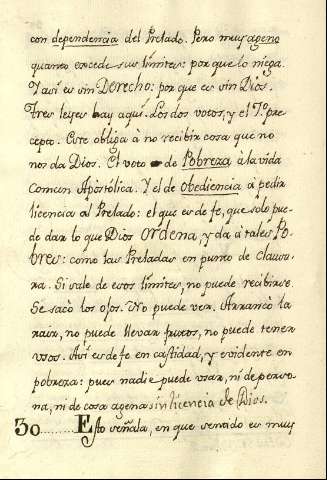 con dependencia del Prelado. Pero muy ageno
quanto excede sus limites: por que lo niega.
Y asi es sin Derecho: por que es sin Dios.
Tres leyes hay aqui. Los dos votos, y el 7º pre
cepto. Este obliga à no recibir cosa que no
nos da Dios. El voto de Pobreza à la vida
comun Apostólica. Y el de obediencia à pedir
licencia al Prelado: el que es de fe, que sólo pue-
de dar lo que Dios ordena, y da à tales Po-
bres: como las Preladas en punto de Clausu-
ra. Si sale de esos limites, no puede recibirse.
Se sacò los ojos. No puede ver. Arrancò la
raiz, no puede llevar frutos, no puede tener
usos. Asi es de fe en castidad, y evidente en
pobreza: pues nadie puede usar, ni de perso-
na, ni de cosa agena sin licencia de Dios.
30 Esto señala, en que sentido es muy